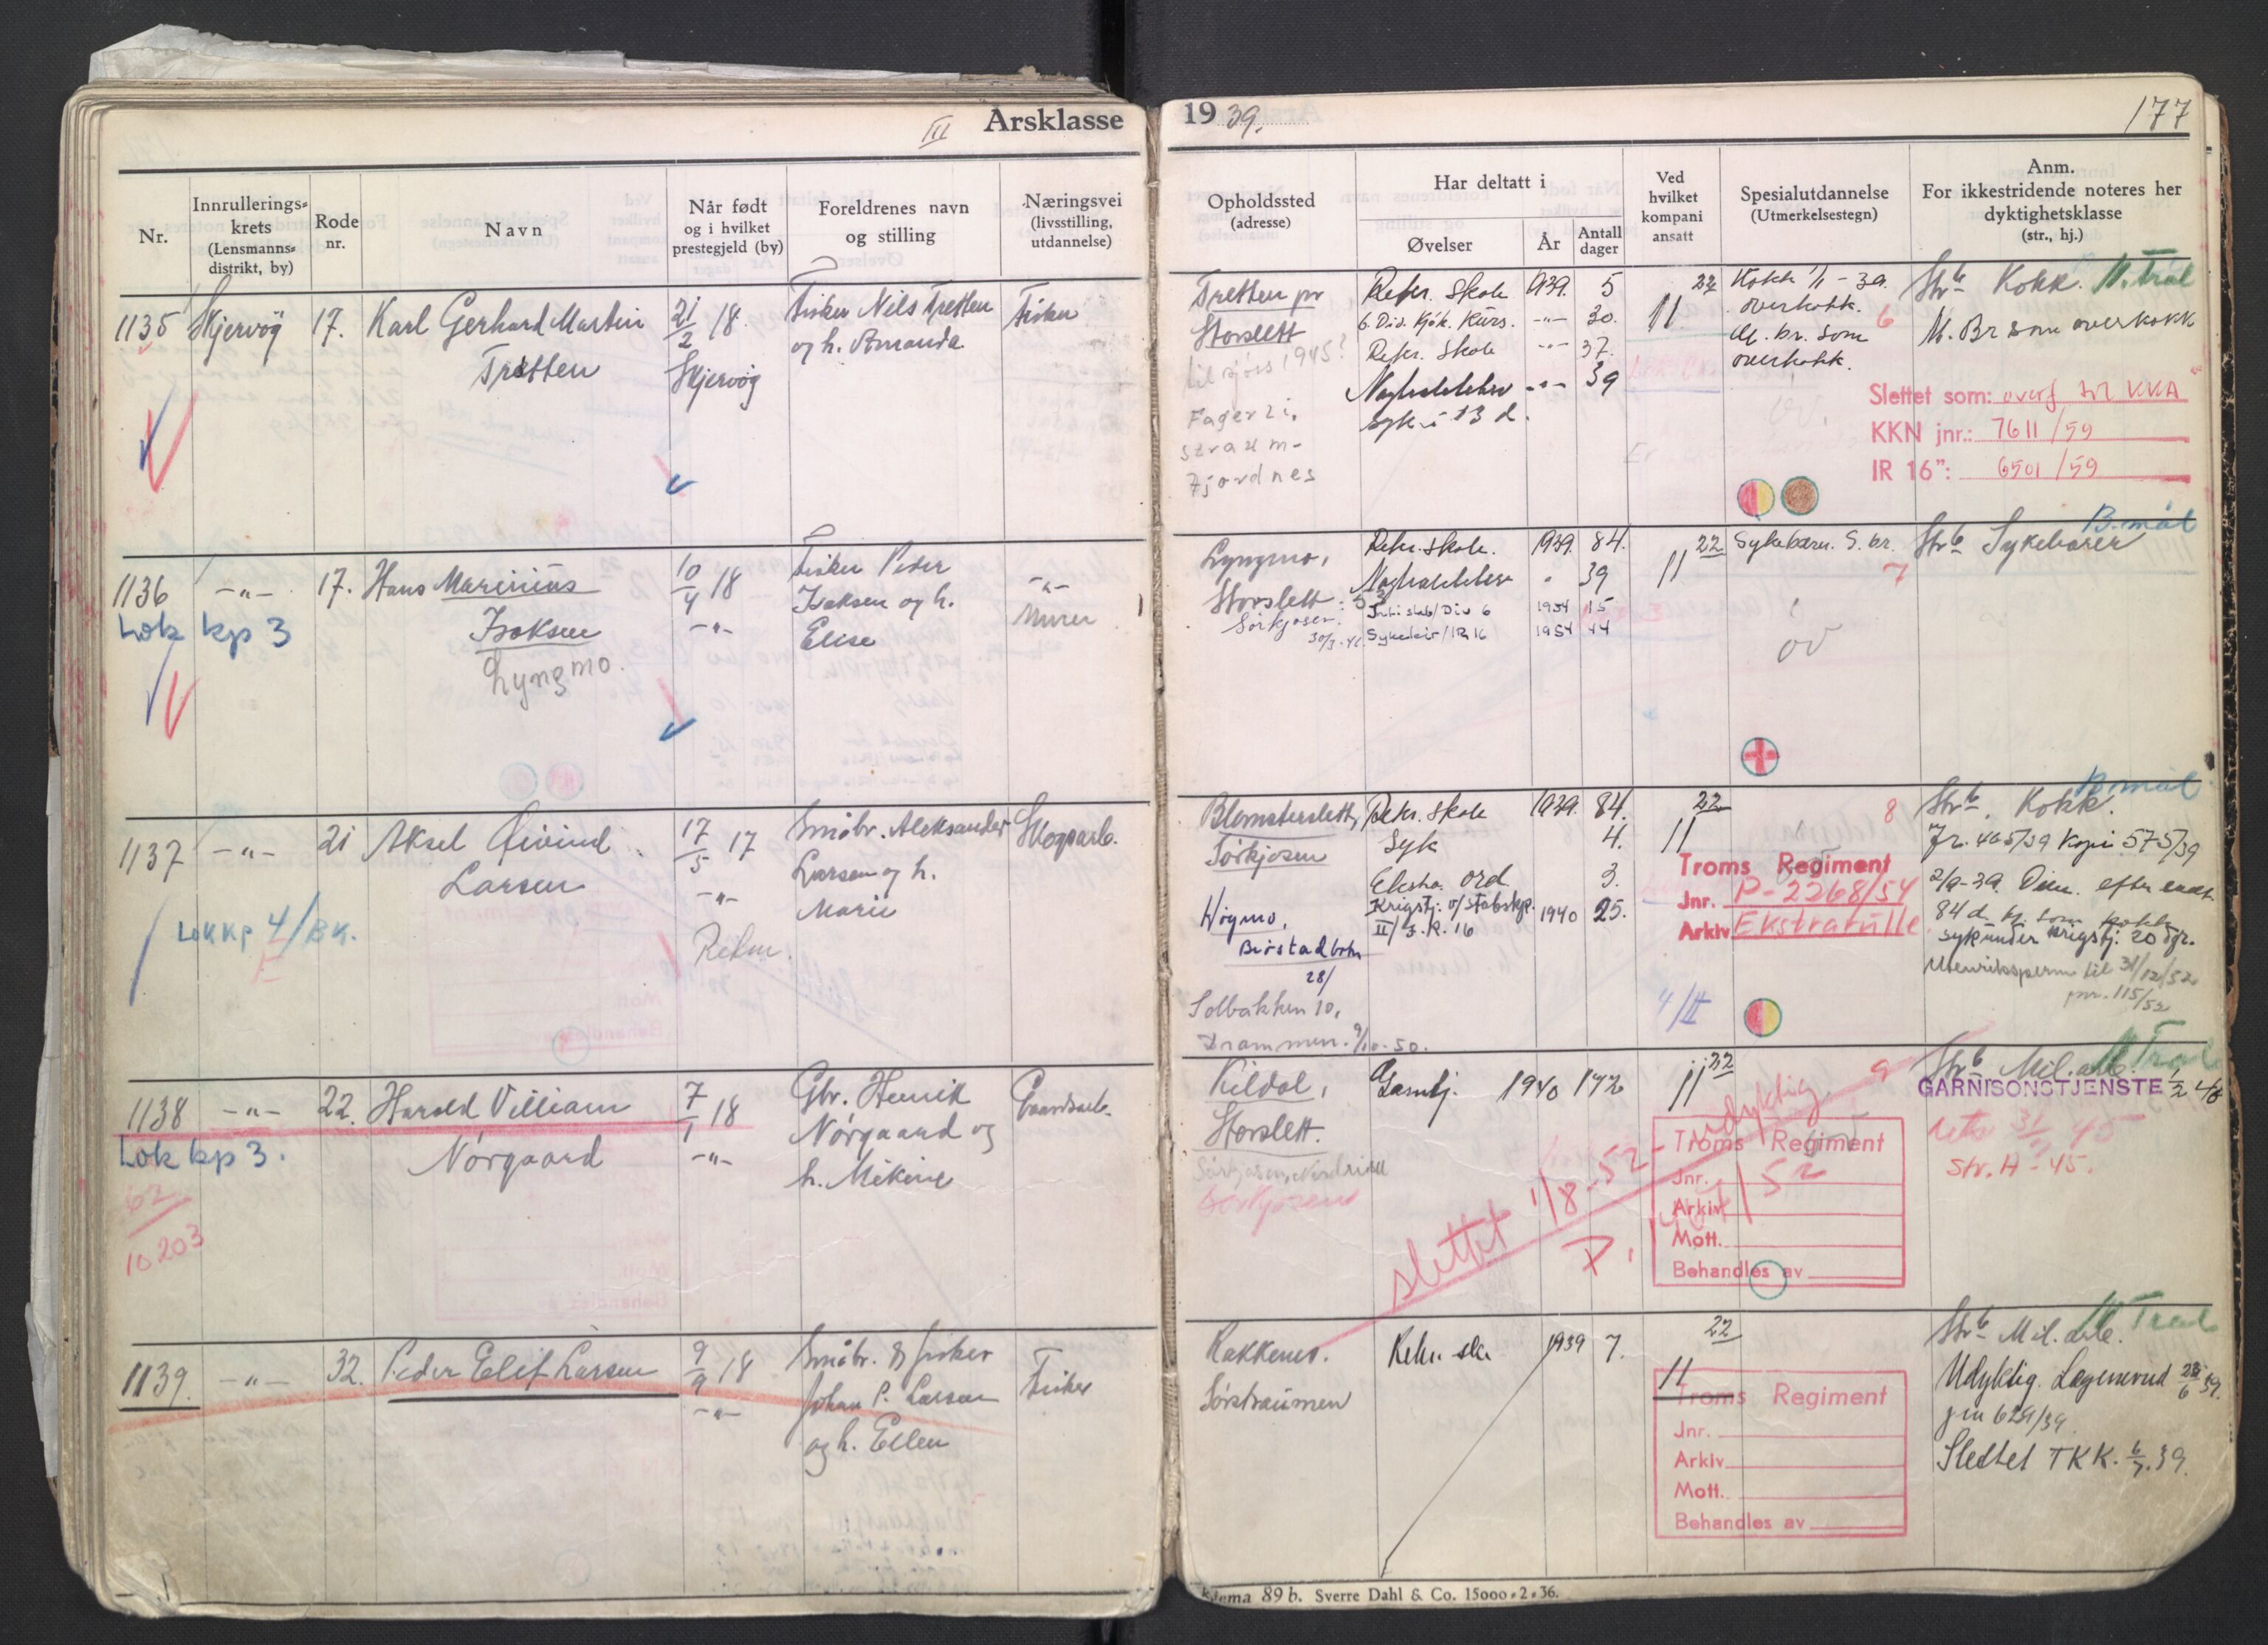 III Årsklasse 1939.
177
Nr.
Innrullerings-
krets
(Lensmanns-
distrikt, by)
Rode
nr.
Navn
Når født
og i hvilket
prestegjeld (by)
Foreldrenes navn
og stilling
Næringsvei
(livsstilling,
utdannelse)
Opholdssted
(adresse)
Har deltatt i
Øvelser
År
Antall
dager
Ved
hvilket
kompani
ansatt
Spesialutdannelse
(Utmerkelsestegn)
Anm.
For ikkestridende noteres her
dyktighetsklasse
(str., hj.)
1135 Skjervöy 17. Karl Gerhard Martin
Tretten
21/2 18.
Skjervöy
Fisker Nils Tretten
og h. Amanda
Fisker
Tretten pr
Storslett
til sjøss 1945?
Fagerli,
straum-
fjordnes
Rekr. Skole 1939. 5
6. Div. Kjøk. Kurs. -"- 30.
Rekr. Skole -"- 37.
-"- 39
syk i 13 d.
22
11
Kokk 1/1 - 39.
overkokk.
M. br. som
overkokk.
6
Strb Kokk. N.Tral
M. Br som overkokk
Slettet som: overf til KKA
KKN jnr.: 7611/59
IR 16": 6501/59
1136 -"- 17. Hans Marinius
Isaksen
Lyngmo.
Lok kp 3
10/4 18
-"-
Fisker Peder
Isaksen og h.
Elise
-"-
Murer
Lyngmo,
Storslett
Sørkjosen
Rekr. skole. 1939. 84.
" 39
Div 6 1954 15
IR 16 1954 44
22
11
Sykebærer. S. br.
7
öv
B. mål
Strb Sykebærer
1137 -"- 21 Aksel Øivind
Larsen
Lok kp 4/BK.
E
17/5 17
-"-
Småbr. Aleksander
Larsen og h.
Marie
Skogsarb.
Blomsterslett,
Sörkjosen
Högmo,
28/
Solbakken 10,
Drammen. 9/10-50.
Rekr. skole 1939. 84.
Syk 4.
Ekstra. ord 3.
Krigstj. v/Stabskp.
II/I.R. 16 1940 25.
22
11
4/II
8
Troms Regiment
Jnr. P-2268/54
Arkiv Ekstrarulle
B. mål
Strb. Kokk.
Jr. 465/39 Kopi 575/39
2/9-39. Dim. efter endt
84 d. tj. som kokk
syk under krigstj. 20 dgr.
Utenriksperm til 31/12/52
pnr. 115/52
1138 -"- 22. Harold Villiam
Nörgaard
Lok kp 3.
62
10203
7/1 18
-"-
Gbr. Henrik
Nörgaard og
h. Mikine
Gaardsarb.
Kildal,
Storslett.
Sørkjosen, Nordreisa
Sørkjosen
Garntj. 1940 172
22
11
9
slettet 1/8-52- udyktig
Troms Regiment
Jnr.
Arkiv
Mott.
Behandles av
Strb Mil. arb. N Tral
GARNISONSTJENSTE 1/2 40
Str. A - 45.
1139. -"- 32. Peder Elif Larsen
9/9 18
-"-
Småbr. & fisker
Johan P. Larsen
og h. Ellen
Fisker
Rakkenes.
Sörstraumen
Rekr. sk. 1939 7.
22
11
Troms Regiment
Jnr.
Arkiv
Mott.
Behandles av
Strb Mil. arb. N Tral
Udyktig. Lægenevnd 28/6 39.
jnr 629/39.
Slettet TKK. 6/7.39.
Skjema 89 b. Sverre Dahl & Co. 15000-2-36.